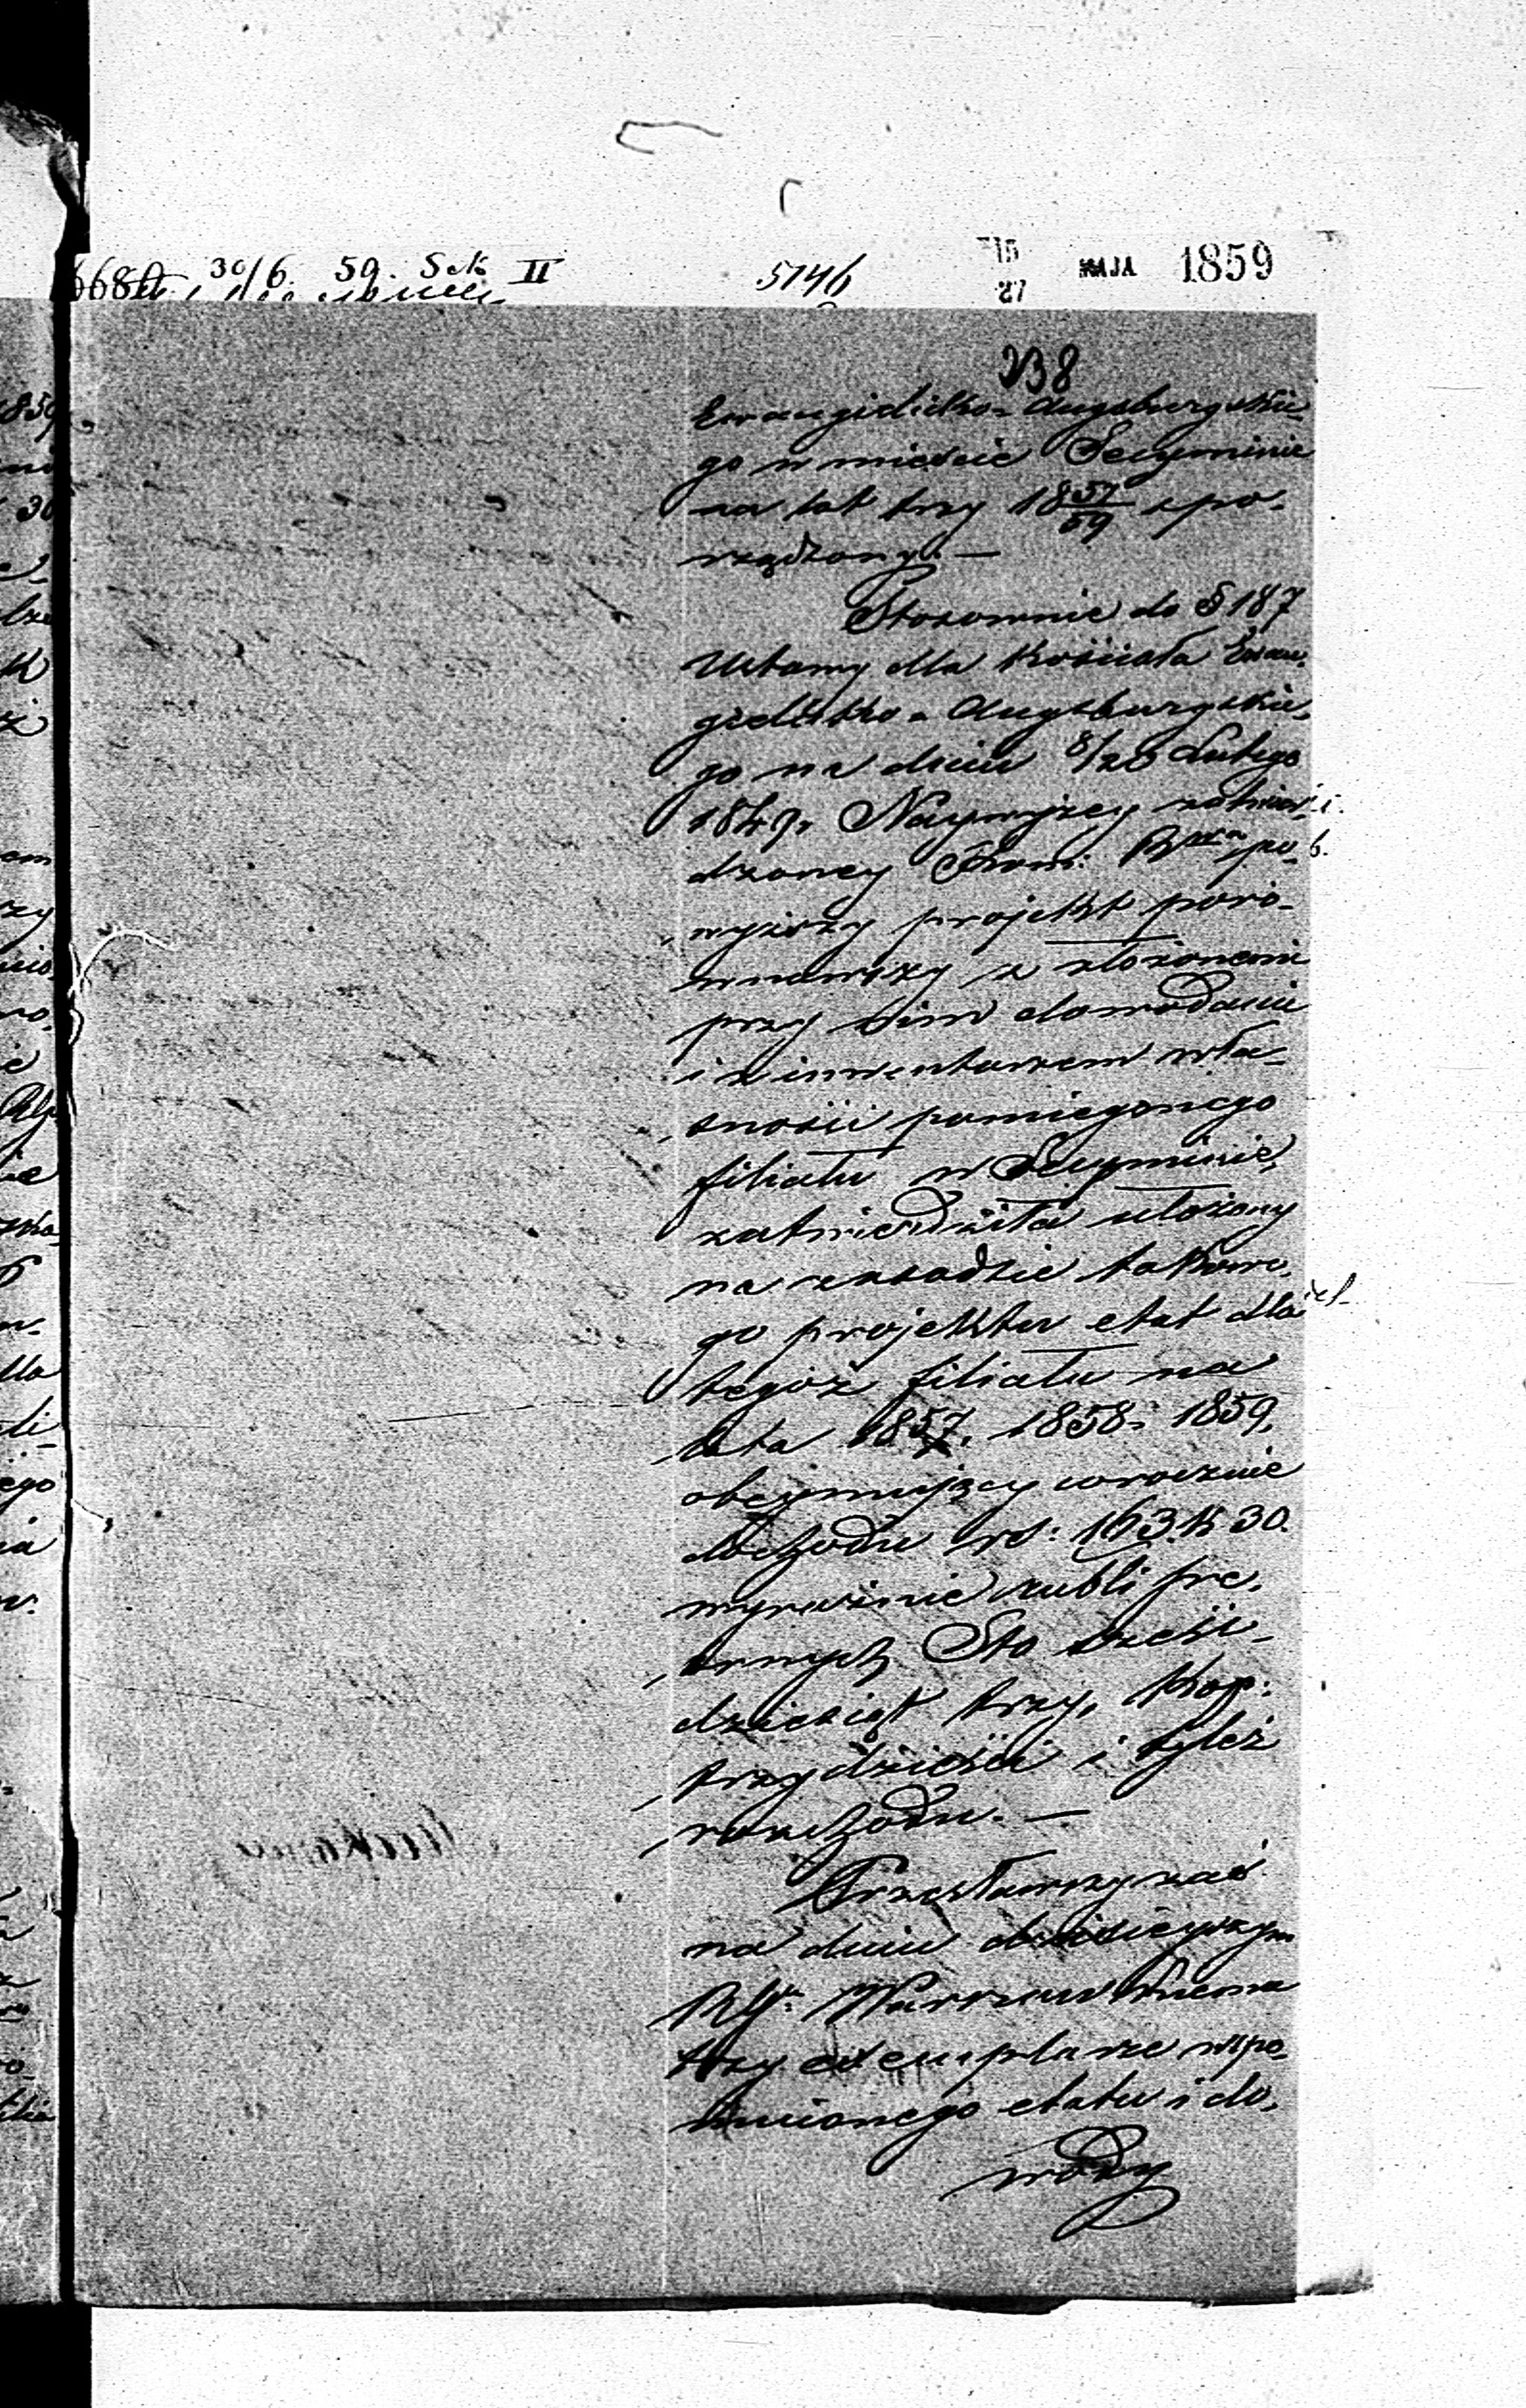 30/6 59. Sek II
5746
15/27 MAJA 1859
238
Ewangielicko-Augsburgskie-
go w mieście Secyminie
na lat trzy 1857/59 spo-
rządzony. —
Stosownie do § 187
Ustawy dla Kościoła Ewan-
gielicko-Augsburgskie-
go na dniu 8/20 Lutego
1849 r. Naywyżey zatwier-
dzoney Kom: po-
wyższy projekt poró-
wnawszy z złożonemi
przy nim dowodami
i z inwentarzem wła-
sności pomiegonego
filiału w Secyminie,
zatwierdziła ułożony
na zasadzie takowe-
go projektu etat dla
tegoż filiału na
lata 1857, 1858 i 1859,
obeymujący corocznie
dochodu rs: 163 k 30.
wyraźnie rubli sre-
brnych Sto sześć-
dziesiąt trzy, kop:
trzydzieści i tyleż
rozchodu. —
Przesławszy zaś
na dniu dzisieyszym
Warszawskiemu
trzy exemplarze wspo-
mnionego etatu i do-
wody